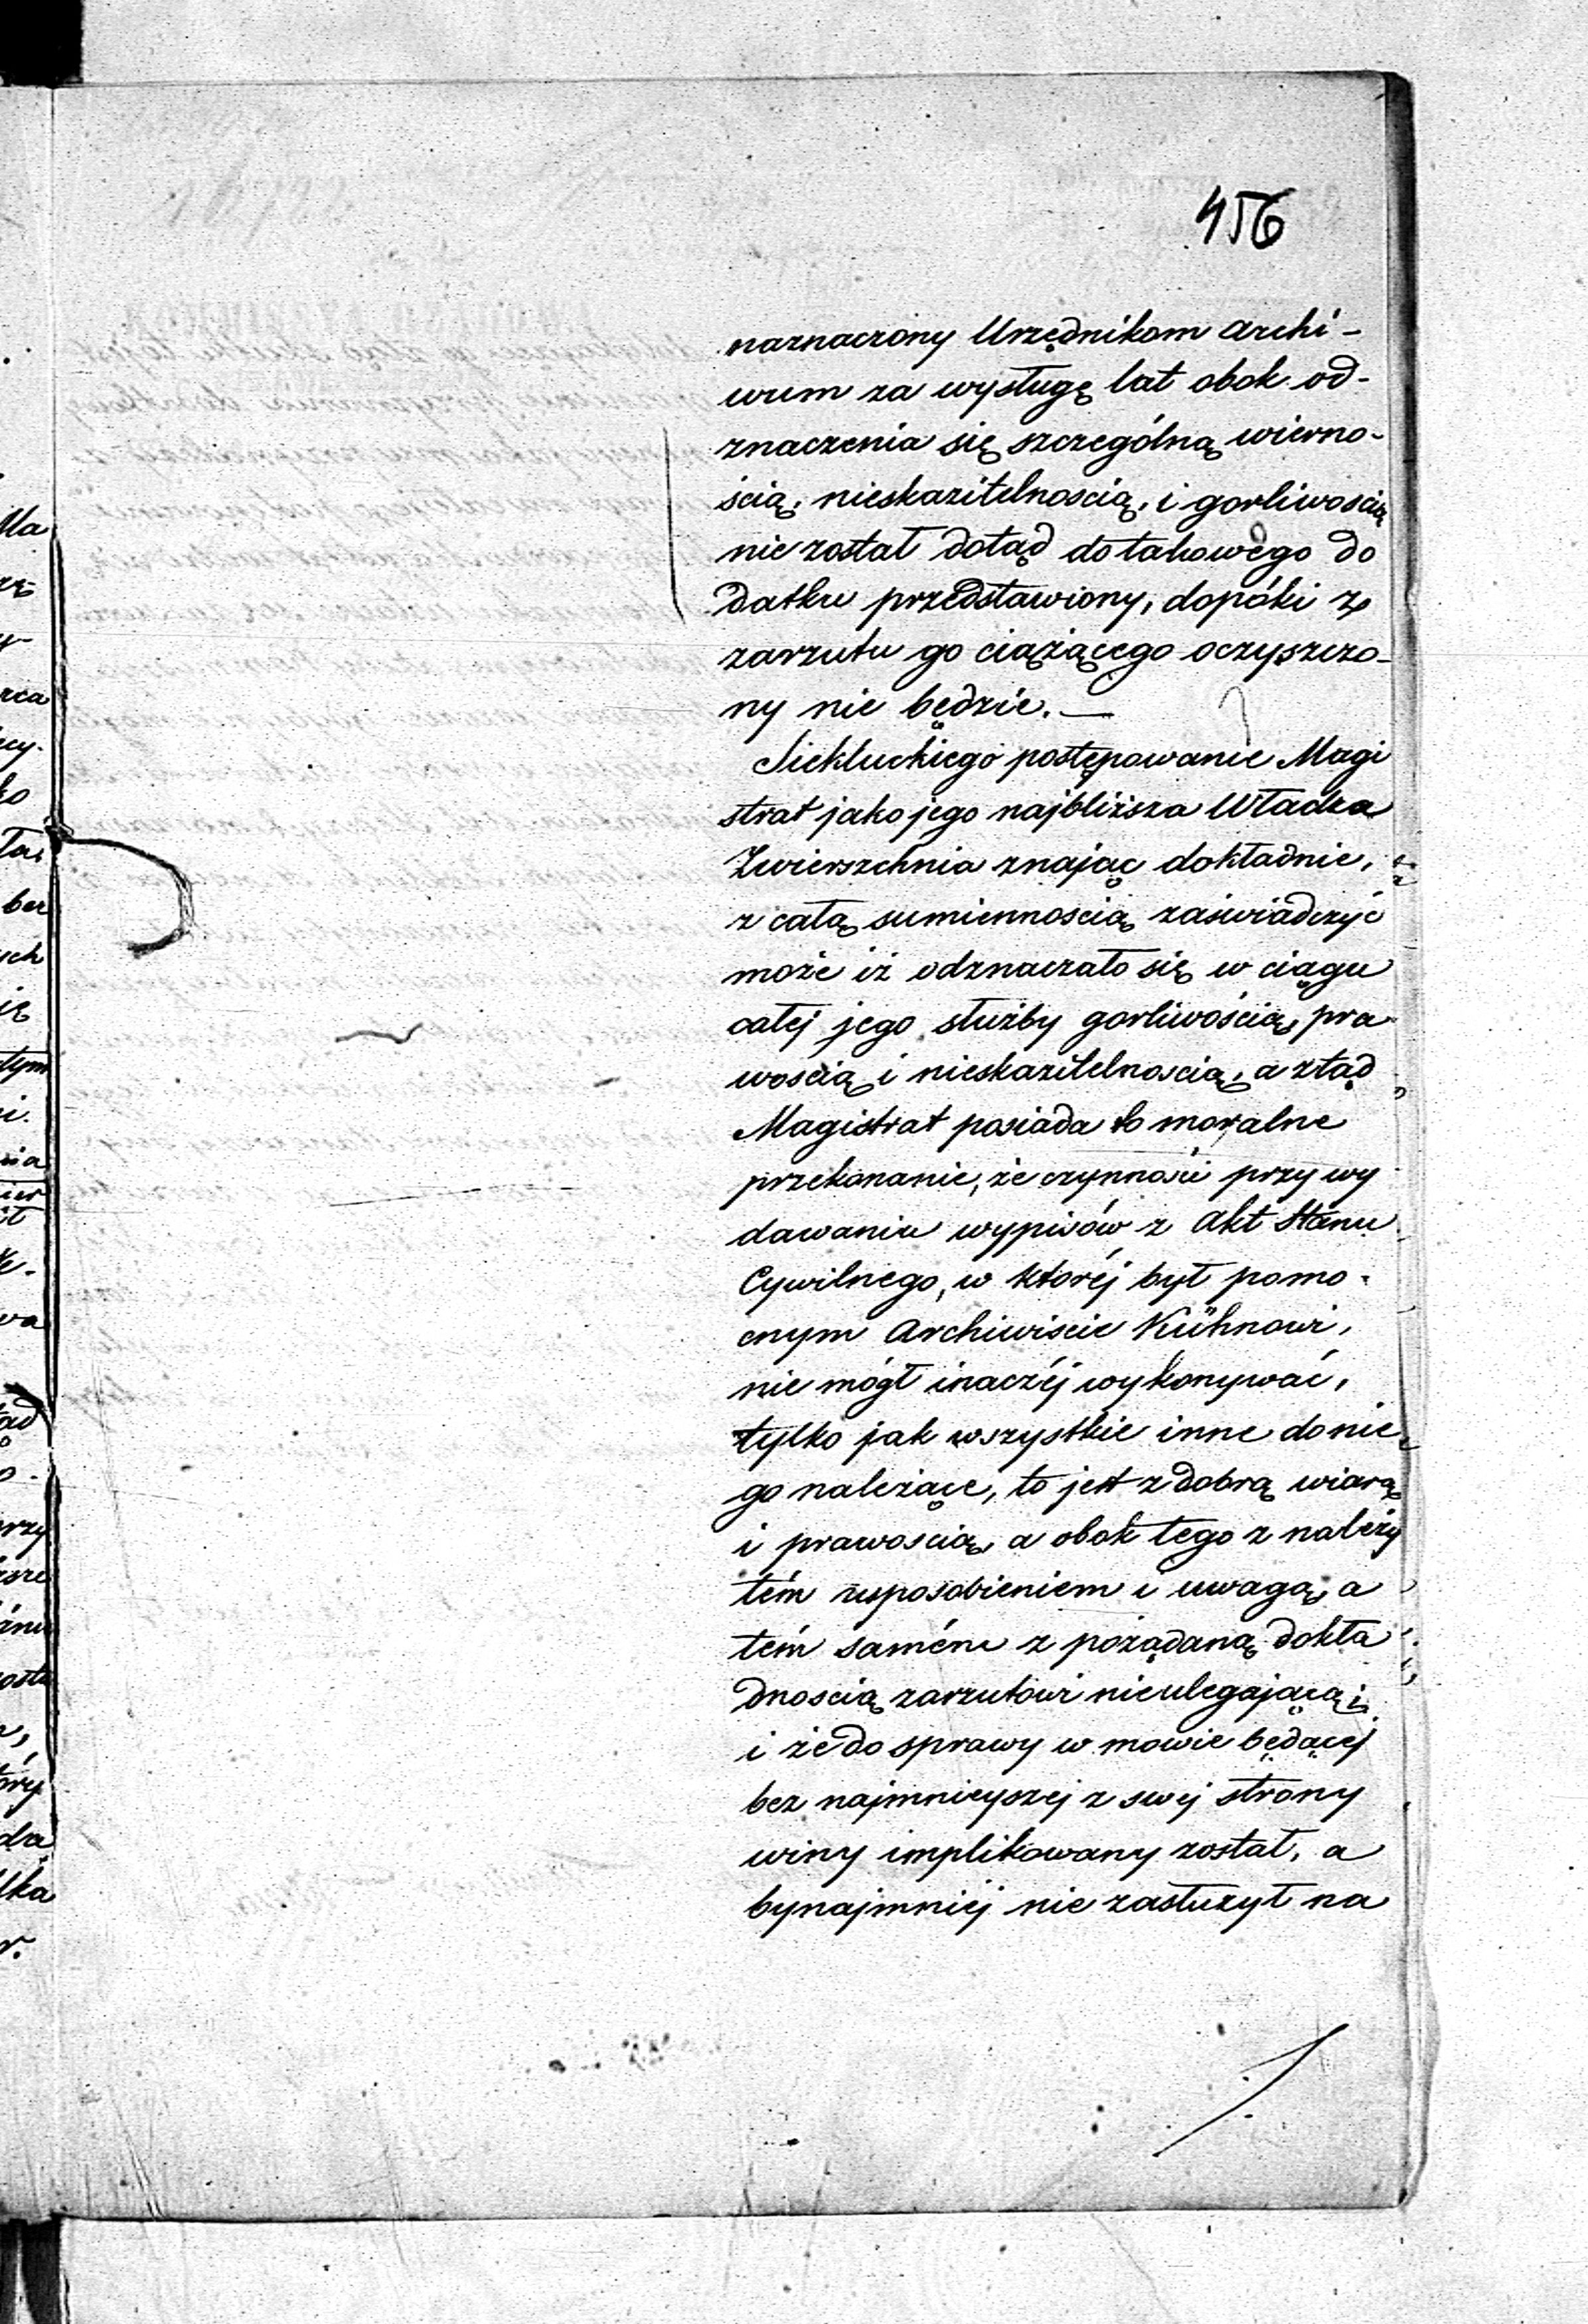 456
naznaczony Urzędnikom Archi-
wum za wysługę lat obok od-
znaczenia się szczególną wierno-
ścią, nieskazitelnoscią, i gorliwoscią
nie został dotąd do takowego do
datku przedstawiony, dopóki z
zarzutu go ciążącego oczyszczo-
ny nie będzie. —
Siekluckiego postępowanie Magi
strat jako jego najbliższa Władza
Zwierzchnia znając dokładnie,
z całą sumiennoscią zaświadczyć
może iż odznaczało się w ciągu
całej jego służby gorliwością, pra
woscią i nieskazitelnoscią, a ztąd
Magistrat posiada to moralne
przekonanie, że czynności przy wy
dawaniu wypisów z Akt Stanu
Cywilnego, w któréj był pomo-
cnym Archiwiscie Kühnowi,
nie mógł inaczéj wykonywać,
tylko jak wszystkie inne do nie
go należące, to jest z dobrą wiarą
i prawoscią, a obok tego z należy
tém usposobieniem i uwagą, a
tém samém z pożądaną dokła
dnoscią zarzutowi nieulegającą;
i że do sprawy w mowie będącej
bez najmnieyszej z swej strony
winy implikowany został, a
bynajmniéj nie zasłużył na